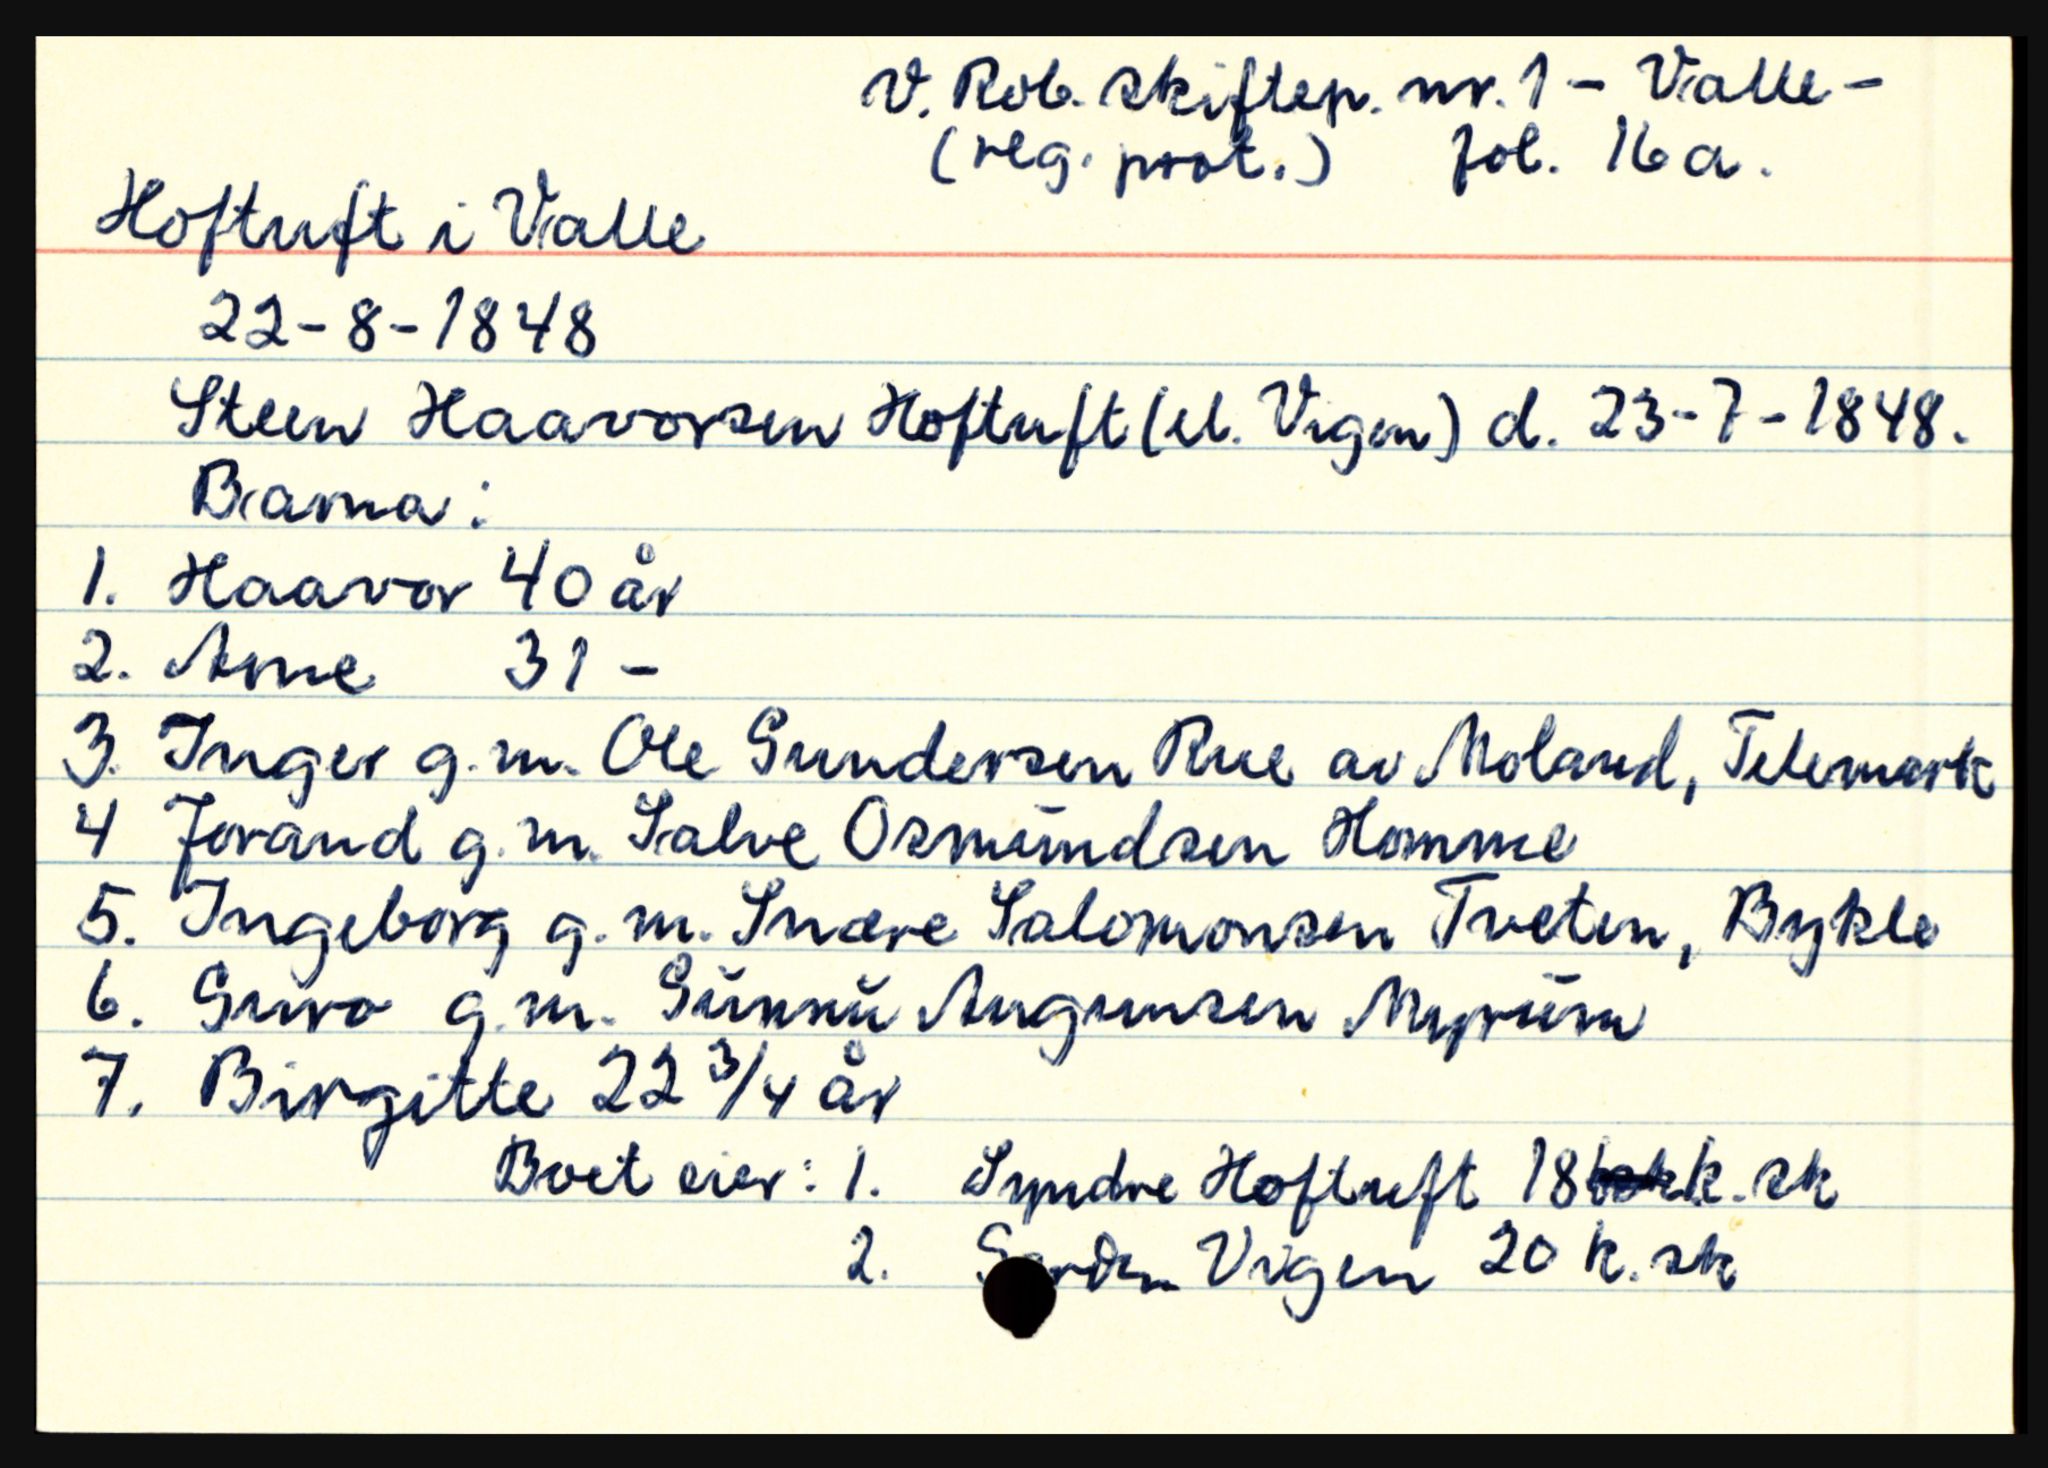 V. Rob. skiftep. nr. 1 - Valle -
(reg. prot.) fol. 16a.
Hoftuft i Valle
22-8-1848
Steen Haavorsen Hoftuft (el. Vigen) d. 23-7-1848.
Barna:
1. Haavor 40 år
2. Arne 31 -
3. Inger g.m. Ole Gundersen Rue av Moland, Telemark
4 Jorand g.m. Salve Osmundsen Homme
5. Ingeborg g.m. Snære Salomonsen Tveten, Bykle
6. Guro g.m. Gunnu Augunsen Myrum
7. Birgitte 22 3/4 år
Boet eier: 1. Syndre Hoftuft 18 k. sk
2. Vigen 20 k. sk